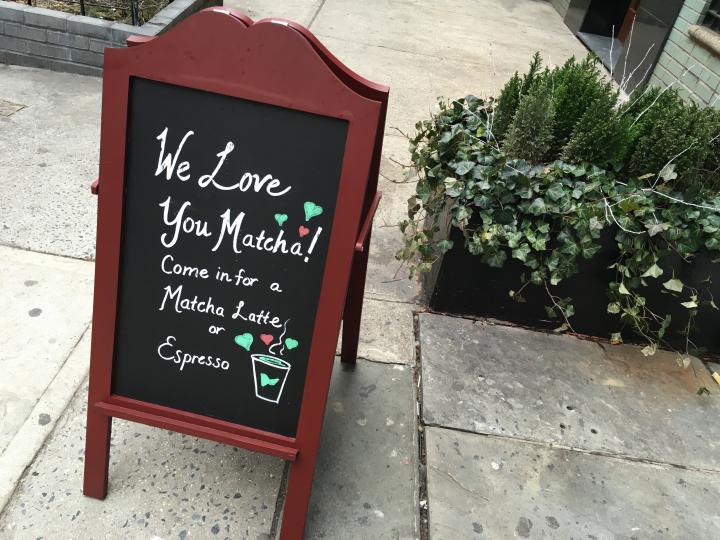 We Love
You Matcha!
Come in for a
Matcha Latte
or
Espresso